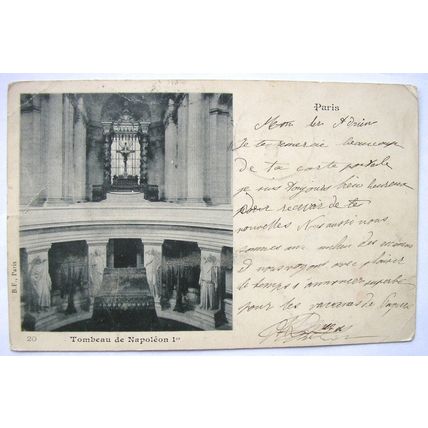 Paris
Mon cher Adrien
Je te remercie beaucoup
de ta carte postale
je suis toujours bien heureux
pour recevoir de tes
nouvelles Nous aussi nous
sommes au milieu des
nous avec plaisir
le temps superbe
pour les vacances de
B.F., Paris
20
Tombeau de Napoléon 1er